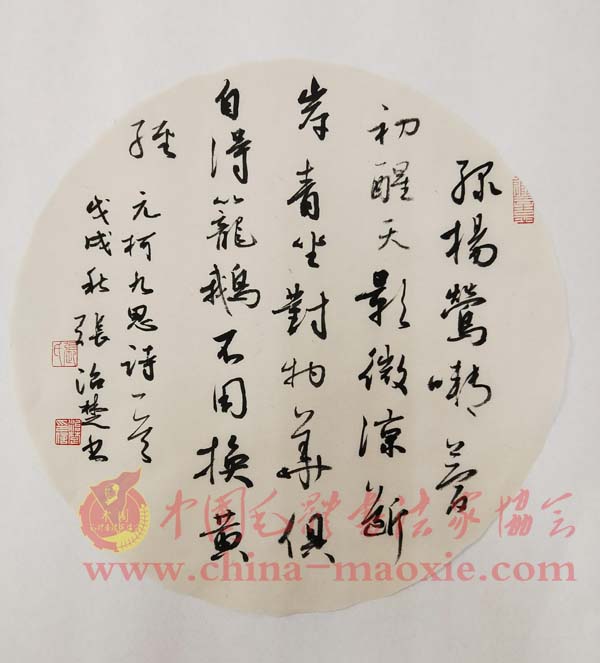 绿楊鶯夢
初醒天影微凉断
岸青坐對物華俱
自得籠鵝不用换黄
經 元柯九思詩一首
戊戌秋張治楚书
中国毛體书法家協会
www.china-maoxie.com